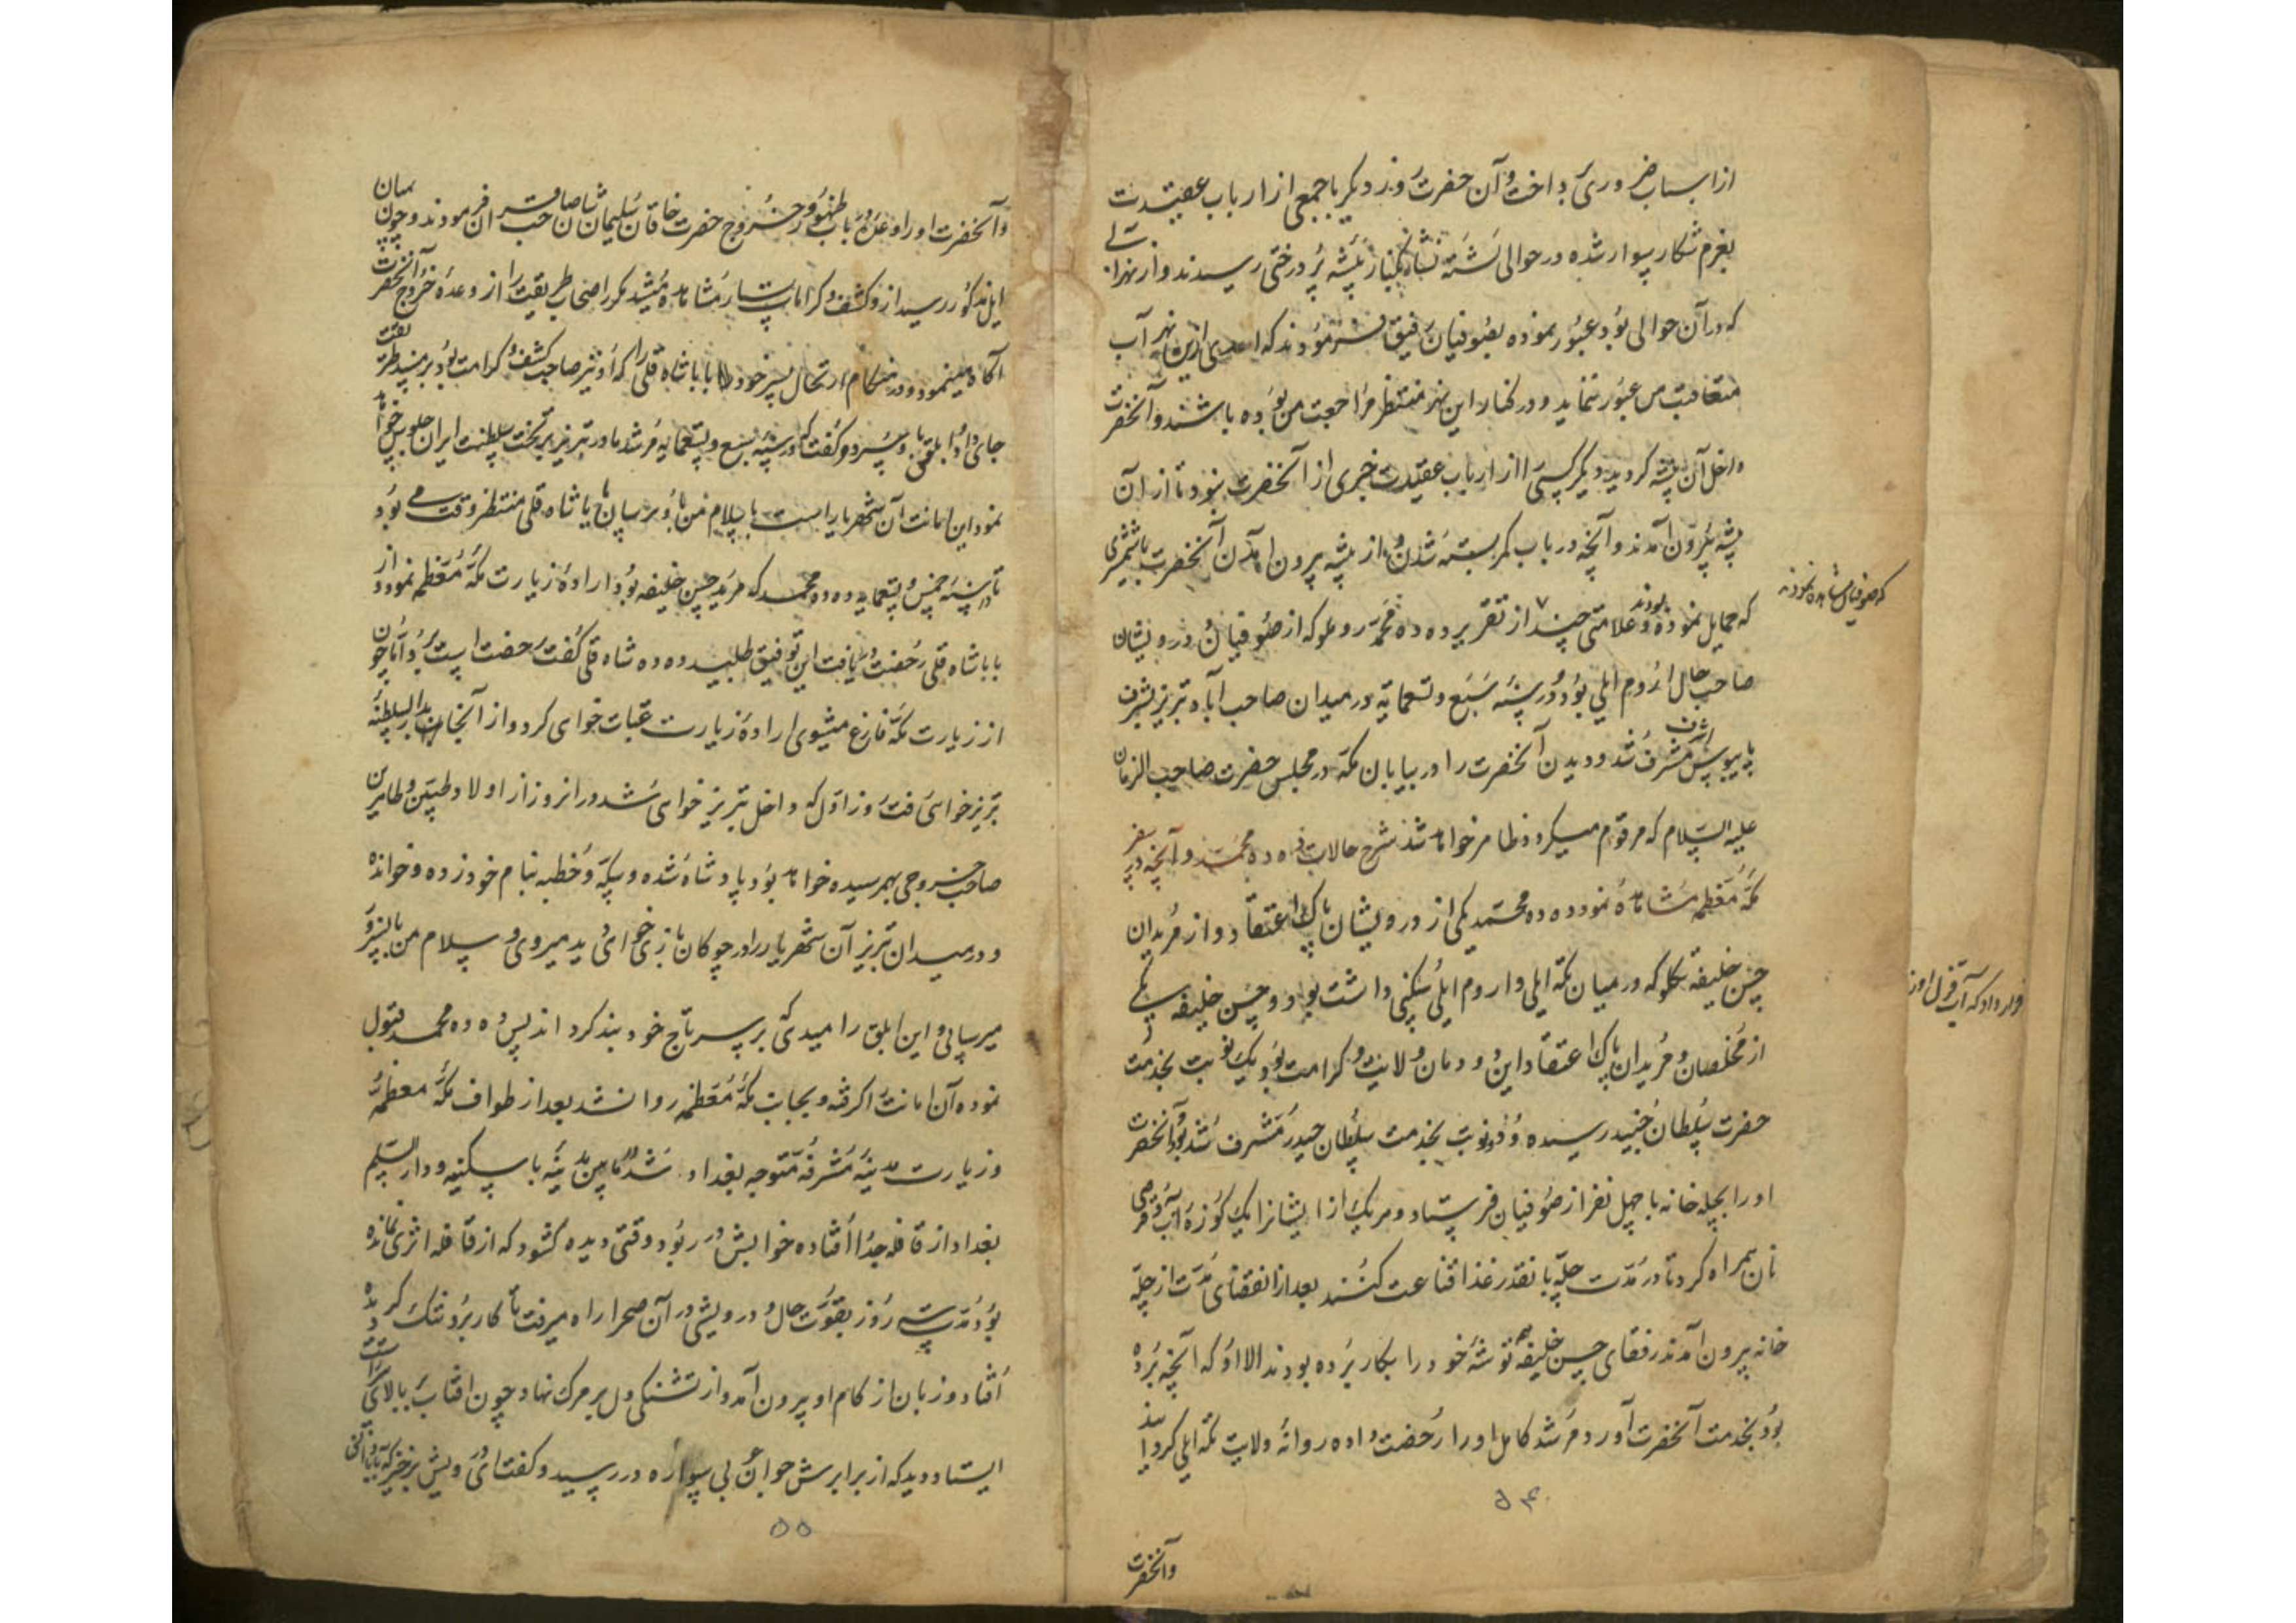 از اسباب ضروری پرداخت و آن حضرت روز دیگر با جمعی از ارباب عقیدت
بعزم شکار سوار شده در حوالی رسیدند و از نهرآبی
که در آن حوالی بود عبور نموده بصوفیان رفیق فرمودند که احدی از این نهر آب
متعاقبت من عبور ننماید و در کنار این نهر منتظر مراجعت من بوده باشند و آنحضرت
داخل آن بیشه گردید دیگر کسی را از ارباب عقیدت خبری از آنحضرت نبود تا از آن
بیشه بیرون آمدند و آنچه در باب کمر بسته شدن و از بیشه بیرون آمدن آنحضرت با شمشیری
که صوفیان مشاهده نمودند
که حمایل نموده بودند و علامتی چند از تقریر ده ده محمد روملو که از صوفیان و درویشان
صاحب حال اروم ایلی بود و در سنه سبع و تسعمایه در میدان صاحب آباد تبریز بشرف
پابوس اشرف مشرف شد و دیدن آنحضرت را در بیابان مکه در مجلس حضرت صاحب الزمان
علیه السلام که مرقوم میگردد ظاهر خواهد شد شرح حالات ده ده محمد و آنچه در سفر
مکه معظمه مشاهده نموده ده ده محمد یکی از درویشان پاک اعتقاد و از مریدان
حسن خلیفه تکلو که در میان تکه ایلی و اروم ایلی سکنی داشت بود و حسن خلیفه یکی
قرار داد که آب قزل اوزن
از مخلصان و مریدان پاک اعتقاد این دودمان ولایت و کرامت بود و یک نوبت بخدمت
حضرت سلطان جنید رسیده و دو نوبت بخدمت سلطان حیدر مشرف شد بود و آنحضرت
او را بچله خانه با چهل نفر از صوفیان فرستاد و هر یک از ایشان را یک کوزه آب و قرصی
نان همراه کرد تا در مدت چله بانقدر غذا قناعت کنند بعد از انقضای مدت از چله
خانه بیرون آمدند رفقای حسن خلیفه توشه خود را بکار برده بودند الا او که آنچه برده
بود بخدمت آنحضرت آورد مرشد کامل او را رخصت داده روانه ولایت تکه ایلی کردانید
۵۴
وآنحضرت
وآنحضرت او را وعده در باب ظهور و خروج حضرت خاقان سلیمان شان صاحب قران فرمودند و چون میان
ایل مذکور رسید از و کشف و کرامات بسیار مشاهده میشد مکرر اصحاب طریقت را از وعده خروج آنحضرت
آگاه مینمود و در هنگام ارتحال پسر خود بابا شاه قلی را که او نیز صاحب کشف و کرامت بود بر مسند طریقت
جای داد و ابلقی باو سپرد و گفت که در سنه سبع و تسعمایه مرشد ما در تبریز بر تخت سلطنت ایران جلوس خواهد
نمود این امانت آن شهریار است با سلام من باو برسان بابا شاه قلی منتظر وقت می بود
تا در سنه خمس و تسعمایه ده ده محمد که مرید حسن خلیفه بود اراده زیارت مکه معظمه نمود و از
بابا شاه قلی رخصت دریافت این توفیق طلبید ده ده شاه قلی گفت رخصت است برو اما چون
از زیارت مکه فارغ میشوی اراده زیارت عتبات خواهی کرد و از آنجا بدار السلطنه
تبریز خواهی رفت روز اول که داخل تبریز خواهی شد در آنروز از اولاد طیبین و طاهرین
صاحب خروجی بهمرسیده خواهد بود پادشاه شده و سکه و خطبه بنام خود زده و خوانده
و در میدان تبریز آن شهریار را در چوگان بازی خواهی دید میروی و سلام من بآنسرور
میرسانی و این ابلق را میدهی که بر سر تاج خود بند کرد اند پس ده ده محمد قبول
نموده آن امانت را گرفته و بجانب مکه معظمه روان شد بعد از طواف مکه معظمه
و زیارت مدینه مشرفه متوجه بغداد شد و در مابین مدینه با سکینه و دار السلم
بغداد از قافله جدا افتاده خوابش در ربود وقتی دیده گشود که از قافله اثری نمانده
بود مدت سه روز بقوت حال و درویشی در آن صحرا راه میرفت تا کار برو تنگ گردیده
افتاد و زبان از کام او بیرون آمد و از تشنگی دل بر مرگ نهاد چون افتاب ببالای
ایستاد دید که از برابرش جوان سواره در رسید و گفت ای درویش برخیز که
۵۵